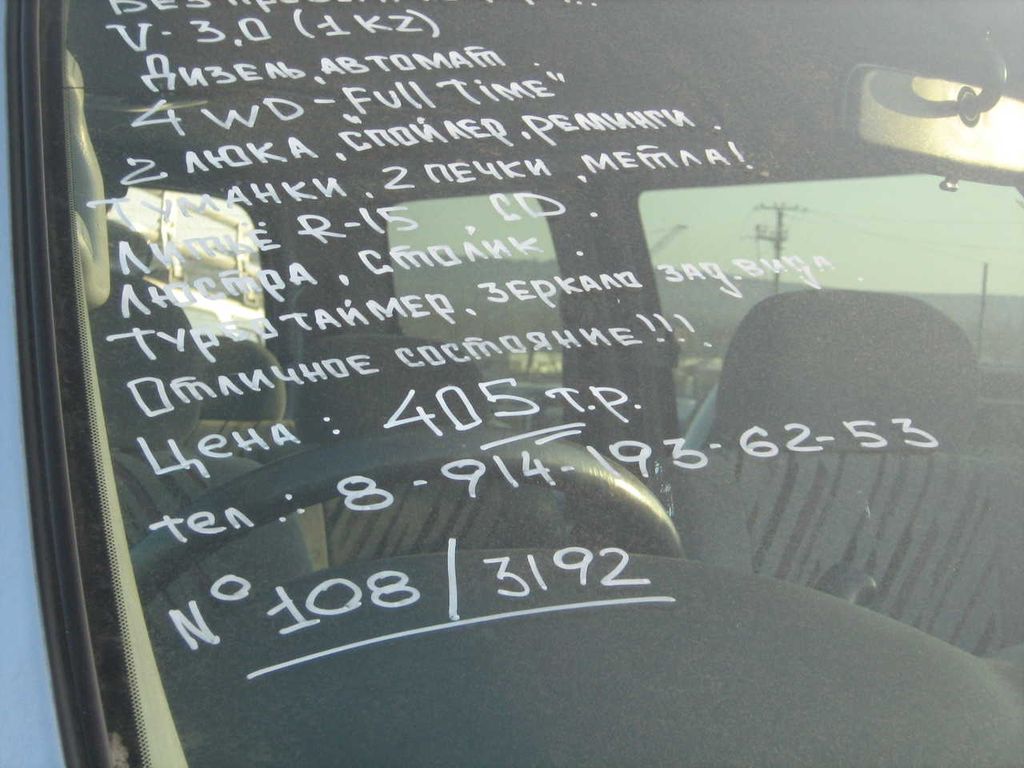 БЕЗ
V- 3.0 (1KZ)
ДИЗЕЛЬ, АВТОМАТ.
4WD - "Full TiME"
2 ЛЮКА, СПОЙЛЕР, РЕЛЛИНГИ.
ТУМАНКИ, 2 ПЕЧКИ, МЕТЛА!
ЛИТЬЁ R-15, CD.
ЛЮСТРА, СТОЛИК.
ТУРБОТАЙМЕР. ЗЕРКАЛО ЗАД.ВИДА.
ОТЛИЧНОЕ СОСТОЯНИЕ!!!
ЦЕНА: 405 Т.Р.
тел.: 8-914-193-62-53
№ 108/3192